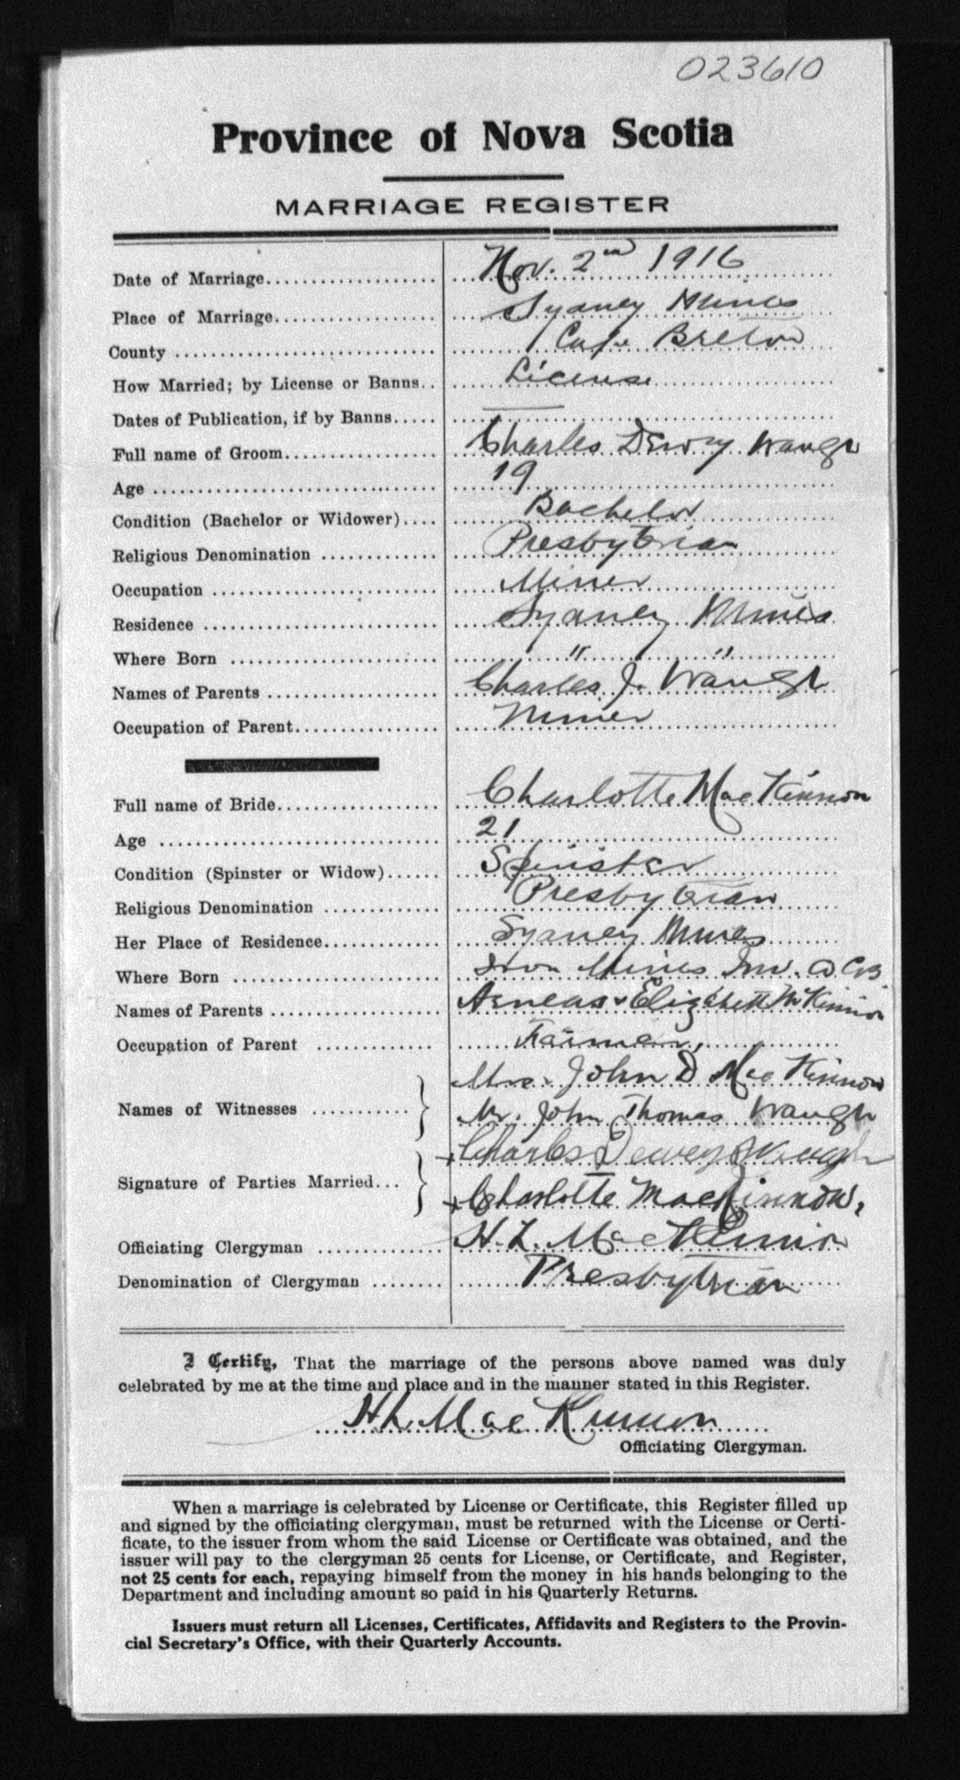 023610
Province of Nova Scotia
MARRIAGE REGISTER
Date of Marriage.................. Nov. 2nd 1916
Place of Marriage................. Sydney Mines
County ........................... Cape Breton
How Married; by License or Banns.. License
Dates of Publication, if by Banns..... —
Full name of Groom................. Charles Dewey Waugh
Age ............................... 19
Condition (Bachelor or Widower).... Bachelor
Religious Denomination ............ Presbyterian
Occupation ........................ Miner
Residence ......................... Sydney Mines
Where Born ........................ " "
Names of Parents .................. Charles J. Waugh
Occupation of Parent............... Miner
Full name of Bride................. Charlotte MacKinnon
Age ............................... 21
Condition (Spinster or Widow)...... Spinster
Religious Denomination ............ Presbyterian
Her Place of Residence............. Sydney Mines
Where Born ........................ Iron Mines Inv. Co CB
Names of Parents .................. Aeneas & Elizabeth McKinnon
Occupation of Parent .............. Farmer,
Mrs. John D MacKinnon
Names of Witnesses ........... } Mr. John Thomas Waugh
+ Charles Dewey Waugh
Signature of Parties Married... } + Charlotte MacKinnon,
Officiating Clergyman ............. H. L. MacKinnon
Denomination of Clergyman ........ Presbytrian
I Certify, That the marriage of the persons above named was duly
celebrated by me at the time and place and in the manner stated in this Register.
H L MacKinnon
Officiating Clergyman.
When a marriage is celebrated by License or Certificate, this Register filled up
and signed by the officiating clergyman, must be returned with the License or Certi-
ficate, to the issuer from whom the said License or Certificate was obtained, and the
issuer will pay to the clergyman 25 cents for License, or Certificate, and Register,
not 25 cents for each, repaying himself from the money in his hands belonging to the
Department and including amount so paid in his Quarterly Returns.
Issuers must return all Licenses, Certificates, Affidavits and Registers to the Provin-
cial Secretary's Office, with their Quarterly Accounts.